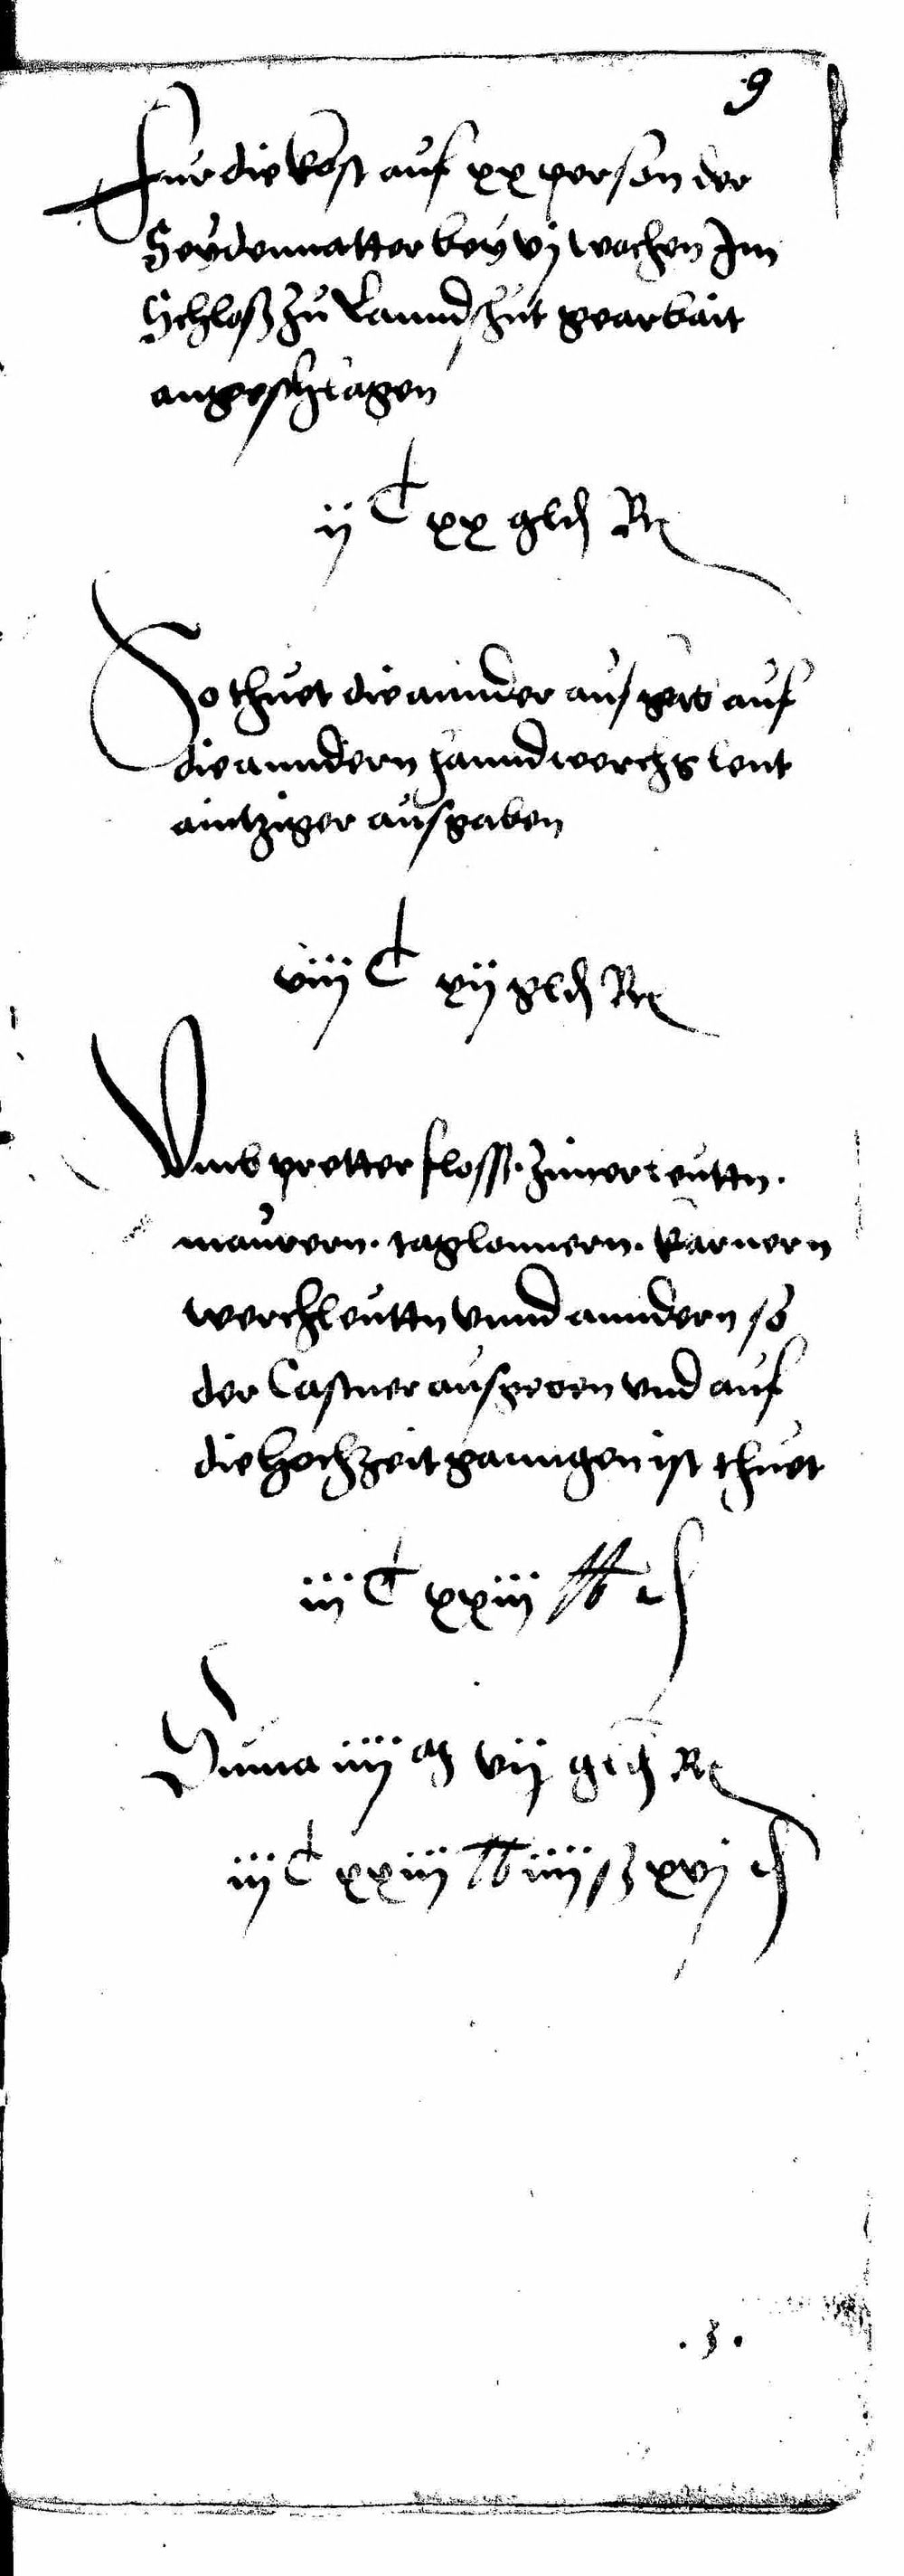 9
Fur die kost auf xx person der
Seydennatter bey vj wochen Im
Schloß zu Lanndshut gearbait
angeschlagen
ij C xx gld Rh
So thuet die annder ausgab auf
die anndern hanndwerchs leut
aintziger ausgaben
viij C xij gld Rh
Vmb pretter floss. Zimerleuttn.
maurern. taglonnern. karnern
werchleuttn vnnd anndern so
der Castner ausgeben vnd auf
die Hochzeit ganngen ist thuet
iij C xxiij lb d
Suma iiij M vij gld Rh
iij C xxiij lb iiij ß xvj d